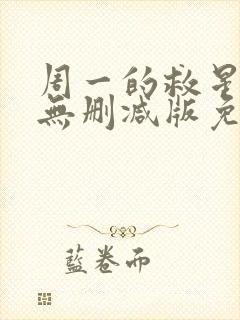 周一的救星
無刪減版免
藍卷而